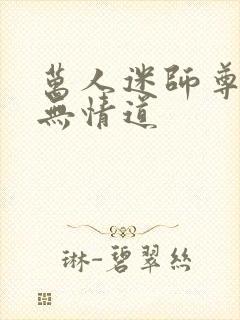 萬人迷師尊
無情道
琳-碧翠絲